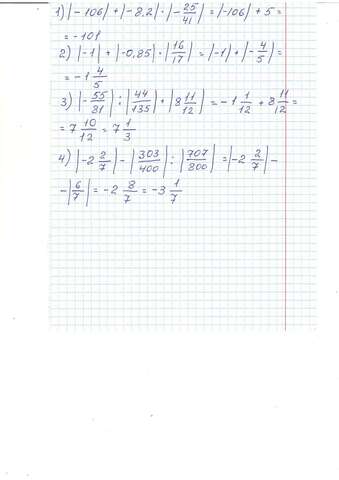 1) |-106| + |-8,2| · |-25/41| = |-106| + 5 =
= -101
2) |-1| + |-0,85| · |16/17| = |-1| + |-4/5| =
= -1 4/5
3) |-55/81| : |44/135| + |8 11/12| = -1 1/12 + 8 11/12 =
= 7 10/12 = 7 1/3
4) |-2 2/7| - |303/400| : |707/800| = |-2 2/7| -
- |6/7| = -2 8/7 = -3 1/7